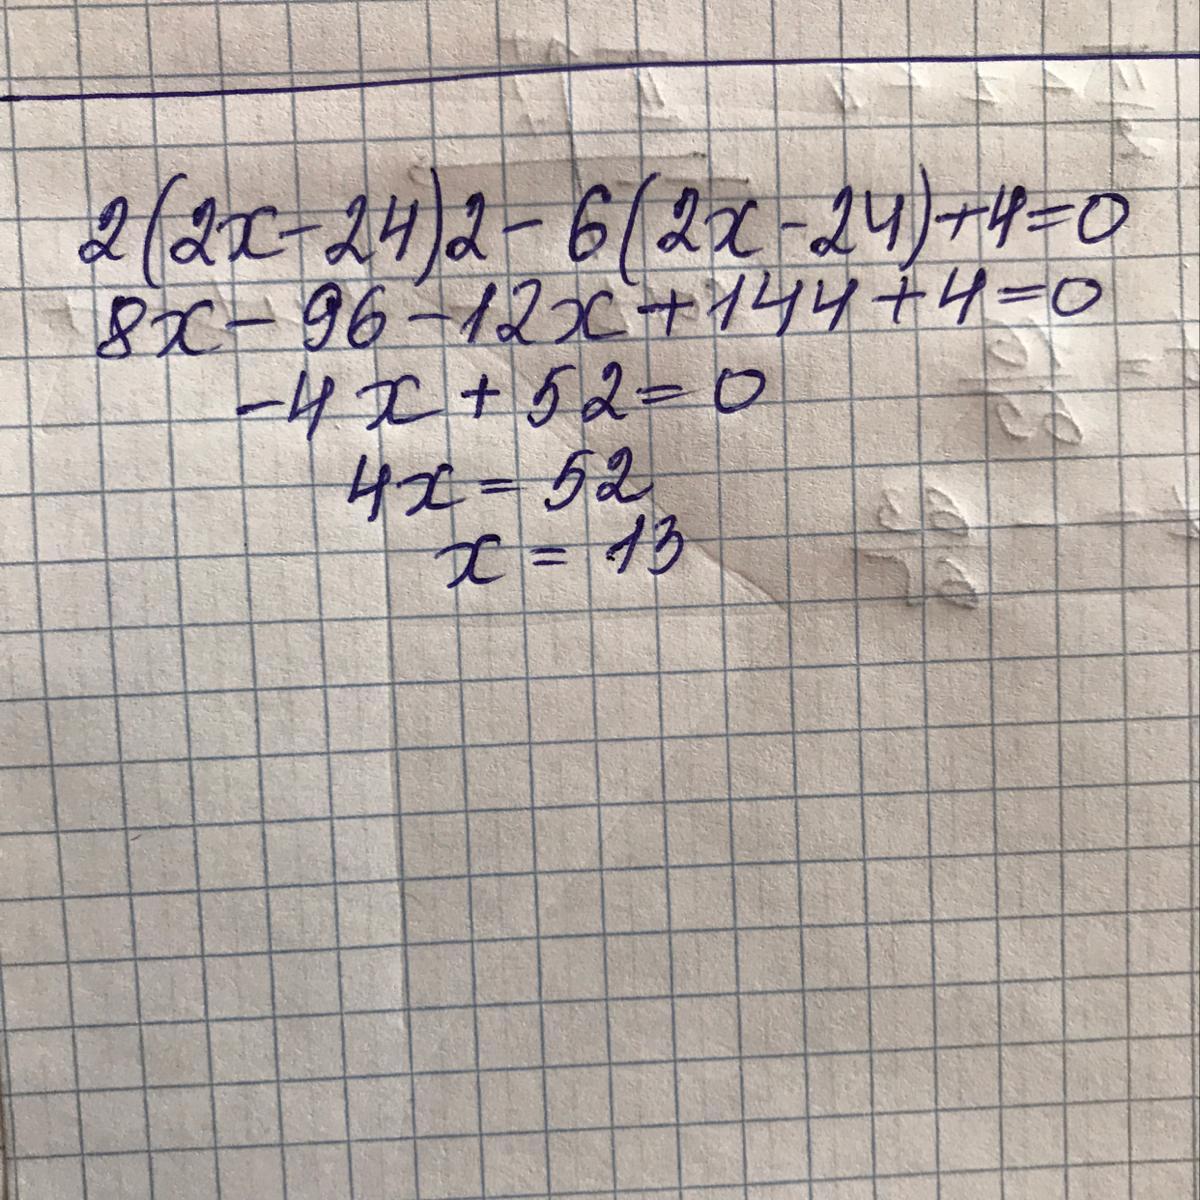 2(2x-24)2-6(2x-24)+4=0
8x-96-12x+144+4=0
-4x+52=0
4x=52
x=13